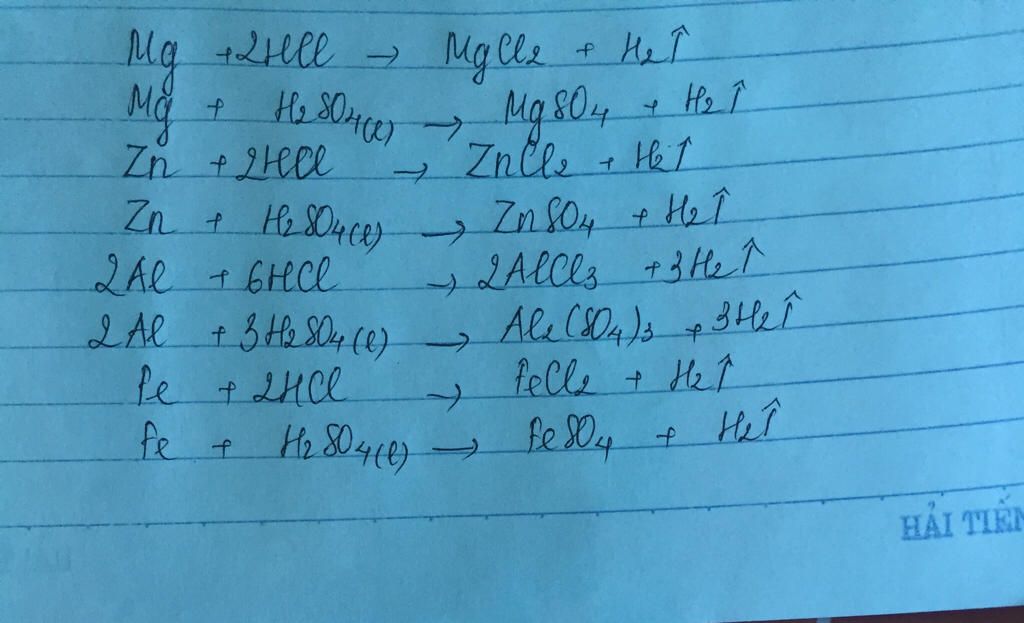 Mg + 2HCl → MgCl₂ + H₂↑
Mg + H₂SO₄(l) → MgSO₄ + H₂↑
Zn + 2HCl → ZnCl₂ + H₂↑
Zn + H₂SO₄(l) → ZnSO₄ + H₂↑
2Al + 6HCl → 2AlCl₃ + 3H₂↑
2Al + 3H₂SO₄(l) → Al₂(SO₄)₃ + 3H₂↑
Fe + 2HCl → FeCl₂ + H₂↑
Fe + H₂SO₄(l) → FeSO₄ + H₂↑
HẢI TIẾN